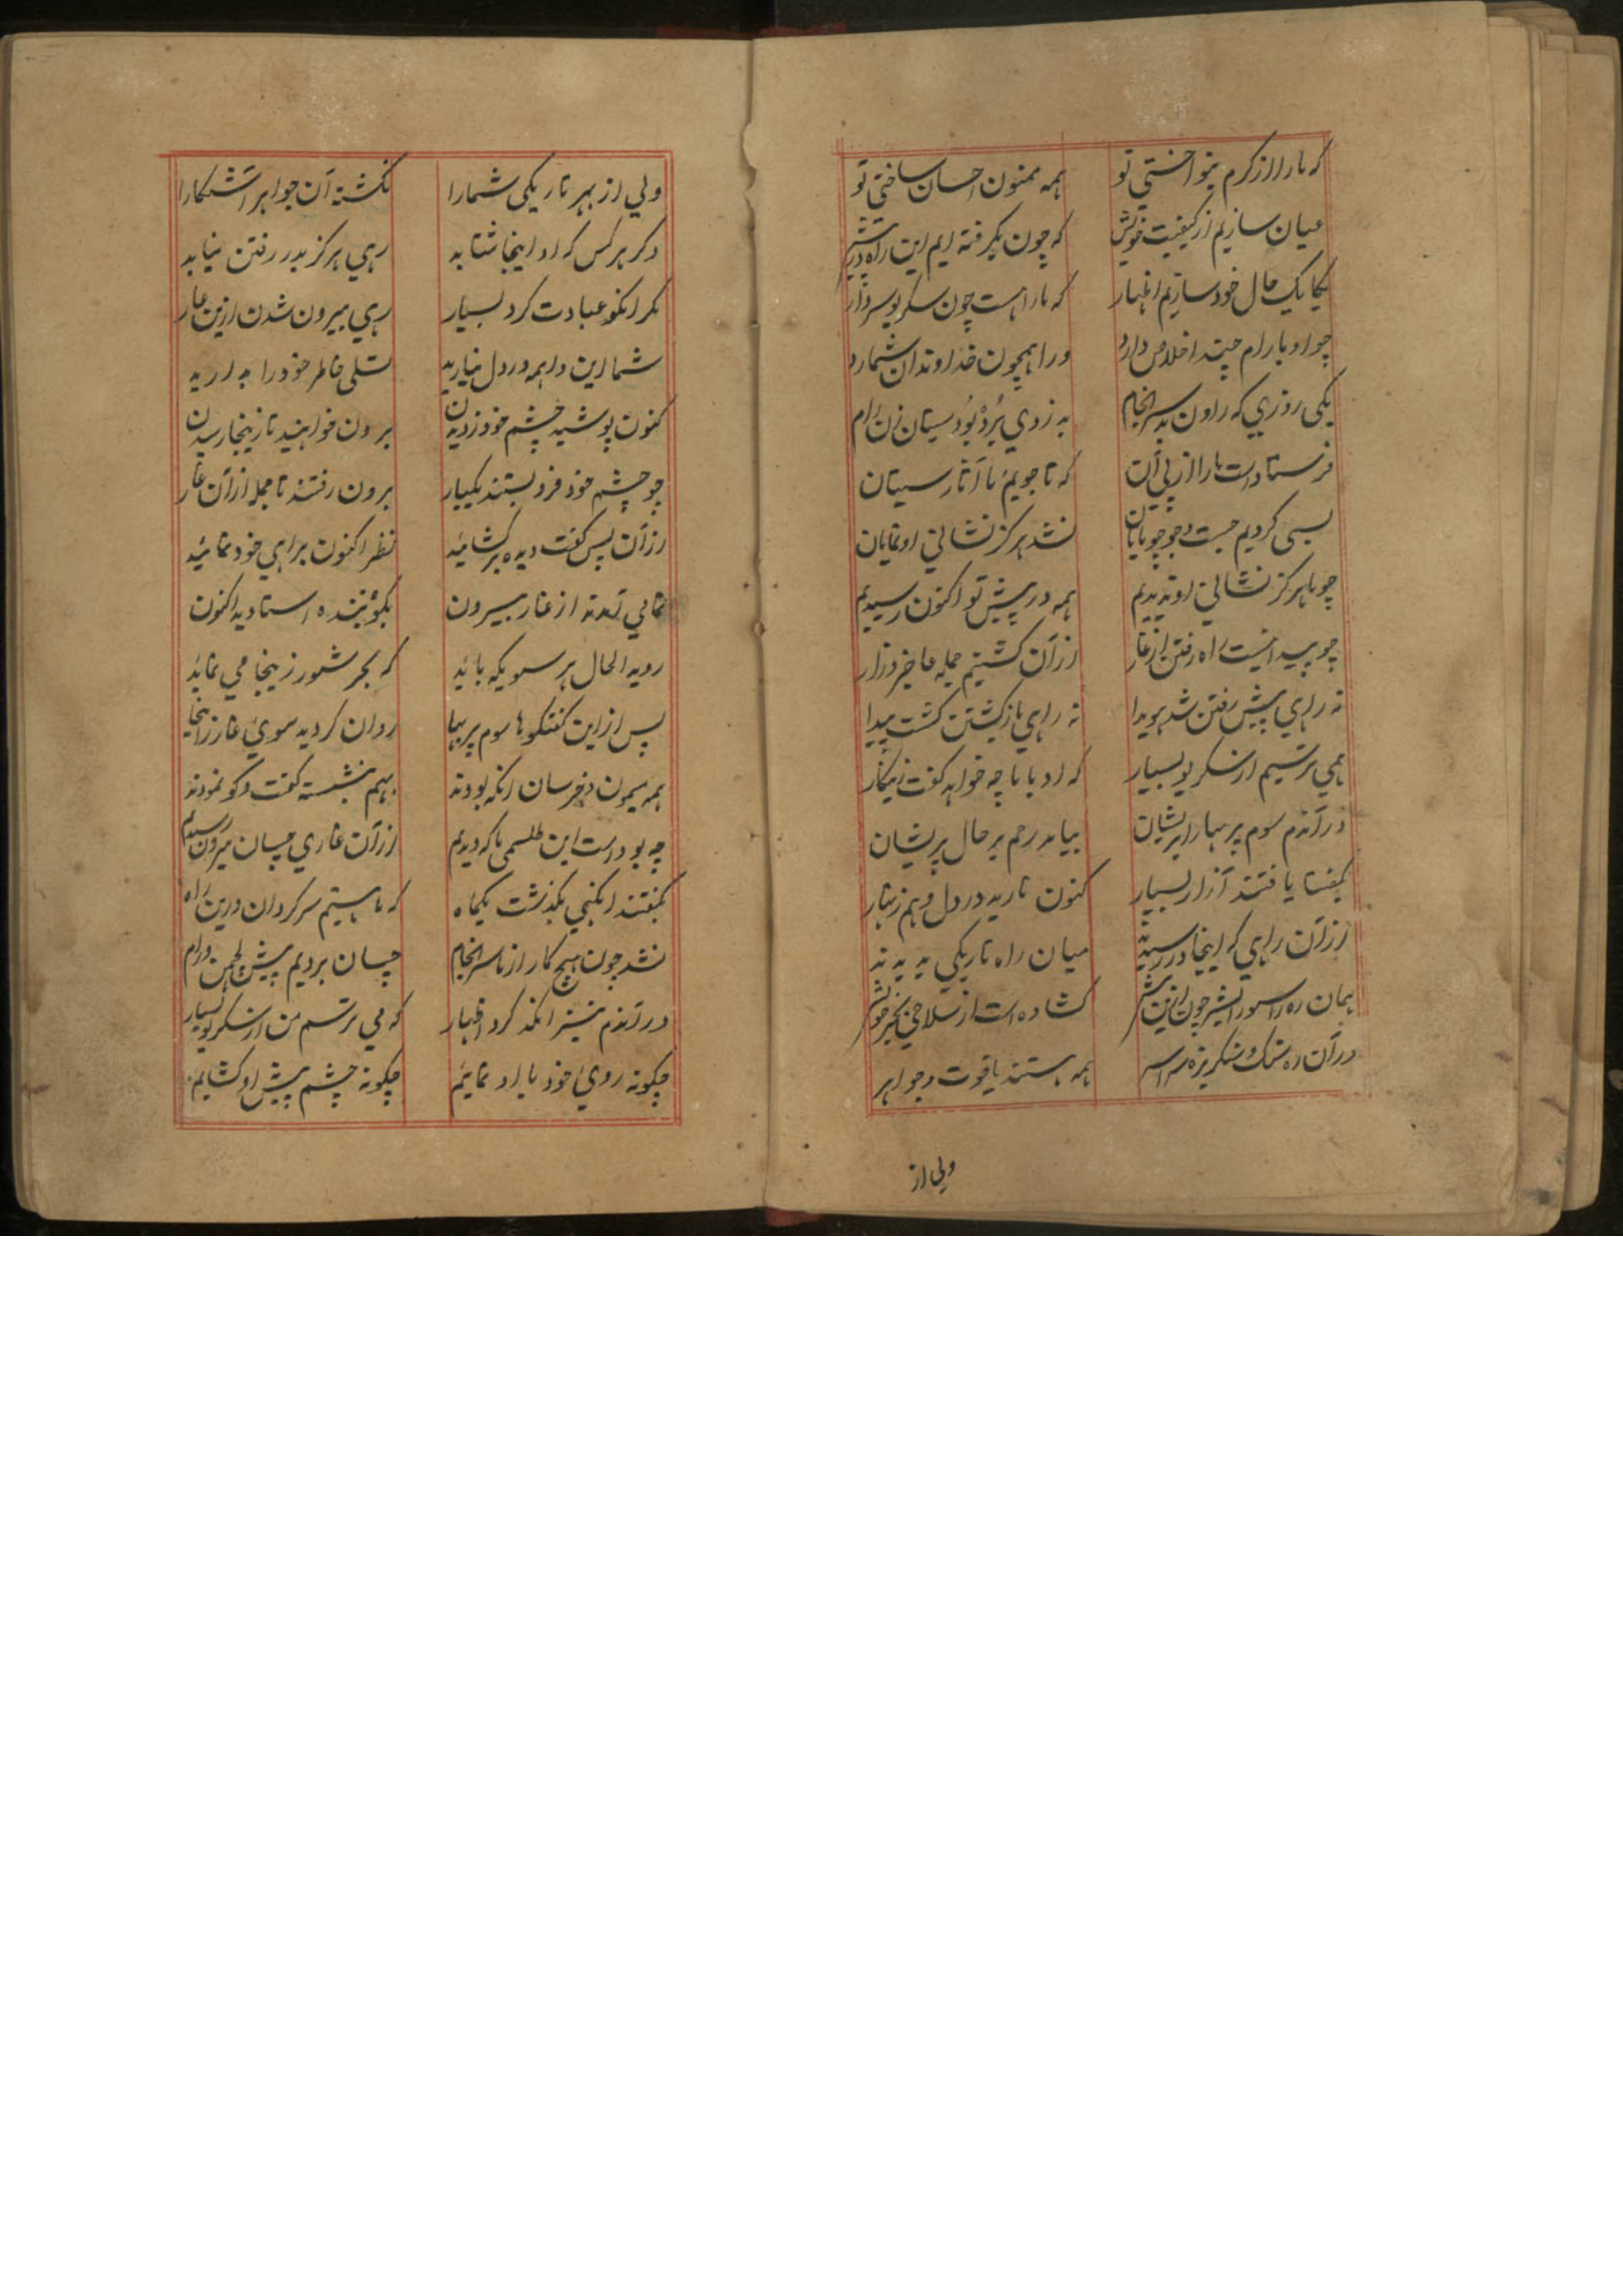 که مارا از کرم بنواختی تو همه ممنون احسان ساختی تو
میان سازیم از کیفیت خویش که چون بگرفته ایم این راه در پیش
یکایک حال خود سازیم اظهار که مارا هست چون سکریو سردار
چو او با رام چند اخلاص دارد ورا همچون خداوندان شمارد
یکی روزی که راون بد سرانجام به زدی برده بود سیتان زن رام
فرستادست مارا از پی آن که تا جویم ما آثار سیتان
بسی کردیم جست و جو چو پایان نشد هرکز نشانی او نمایان
چو ما هرکز نشانی او ندیدیم همه در پیش تو اکنون رسیدیم
چو پیدا نیست راه رفتن از غار ازآن کشتیم جمله عاجز و زار
نه راهی پیش رفتن شد هویدا نه راهی بازکشتن کشت پیدا
همی ترسیم از سکریو بسیار که او با ما چه خواهد کفت زینکار
درآندم سوم پربها را بریشان بیامد رحم بر حال پریشان
بکفتا یافتند آزار بسیار کنون نارید در دل وهم زنهار
ازآن راهی که اینجا در رسیدند میان راه تاریکی بدیدند
همان ره را سور ایشر چون ازین پیش کشاده است از سلاحی
درآن ره سنک و سنکریزه سراسر همه هستند یاقوت و جواهر
ولی از
ولی از بهر تاریکی شمارا نکشته آن جواهر آشکارا
دکر هرکس که او اینجا شتابد رهی هرکز بدر رفتن نیابد
مکر انکو عبادت کرد بسیار رهی بیرون شدن ازین غار
شما این واهمه در دل نیارید تسلی خاطر خود را بدارید
کنون پوشید چشم خود زدیدن برون خواهید تا زینجا رسیدن
چو چشم خود فرو بستند یکبار برون رفتند تا جمله ازآن غار
ازآن پس کفت دیده برکشائید نظر اکنون برای خود نمائید
تمامی آمدند از غار بیرون بکوه بنده استادید اکنون
روید الحال هر سویکه باید که بحر شور زینجا می نماید
پس از این کفتکوها سوم پربها روان کردید سوئ غار زانجا
همه میمون و خرسان انکه بودند بهم نشسته کفت و کو نمودند
چه بوداست این طلسمی ما که دیدیم ازآن غاری چسان بیرون رسیدیم
بکفتند انکهی بکذشت یکماه که ما هستیم سرکردان درین راه
نشد چون هیچ کار از ما سرانجام چسان بردیم پیش لچمن و رام
درآندم نیز انکد کرد اظهار که می ترسم من از سکریو بسیار
چکونه روئ خود با او نمائیم چکونه چشم پیش او کشایم